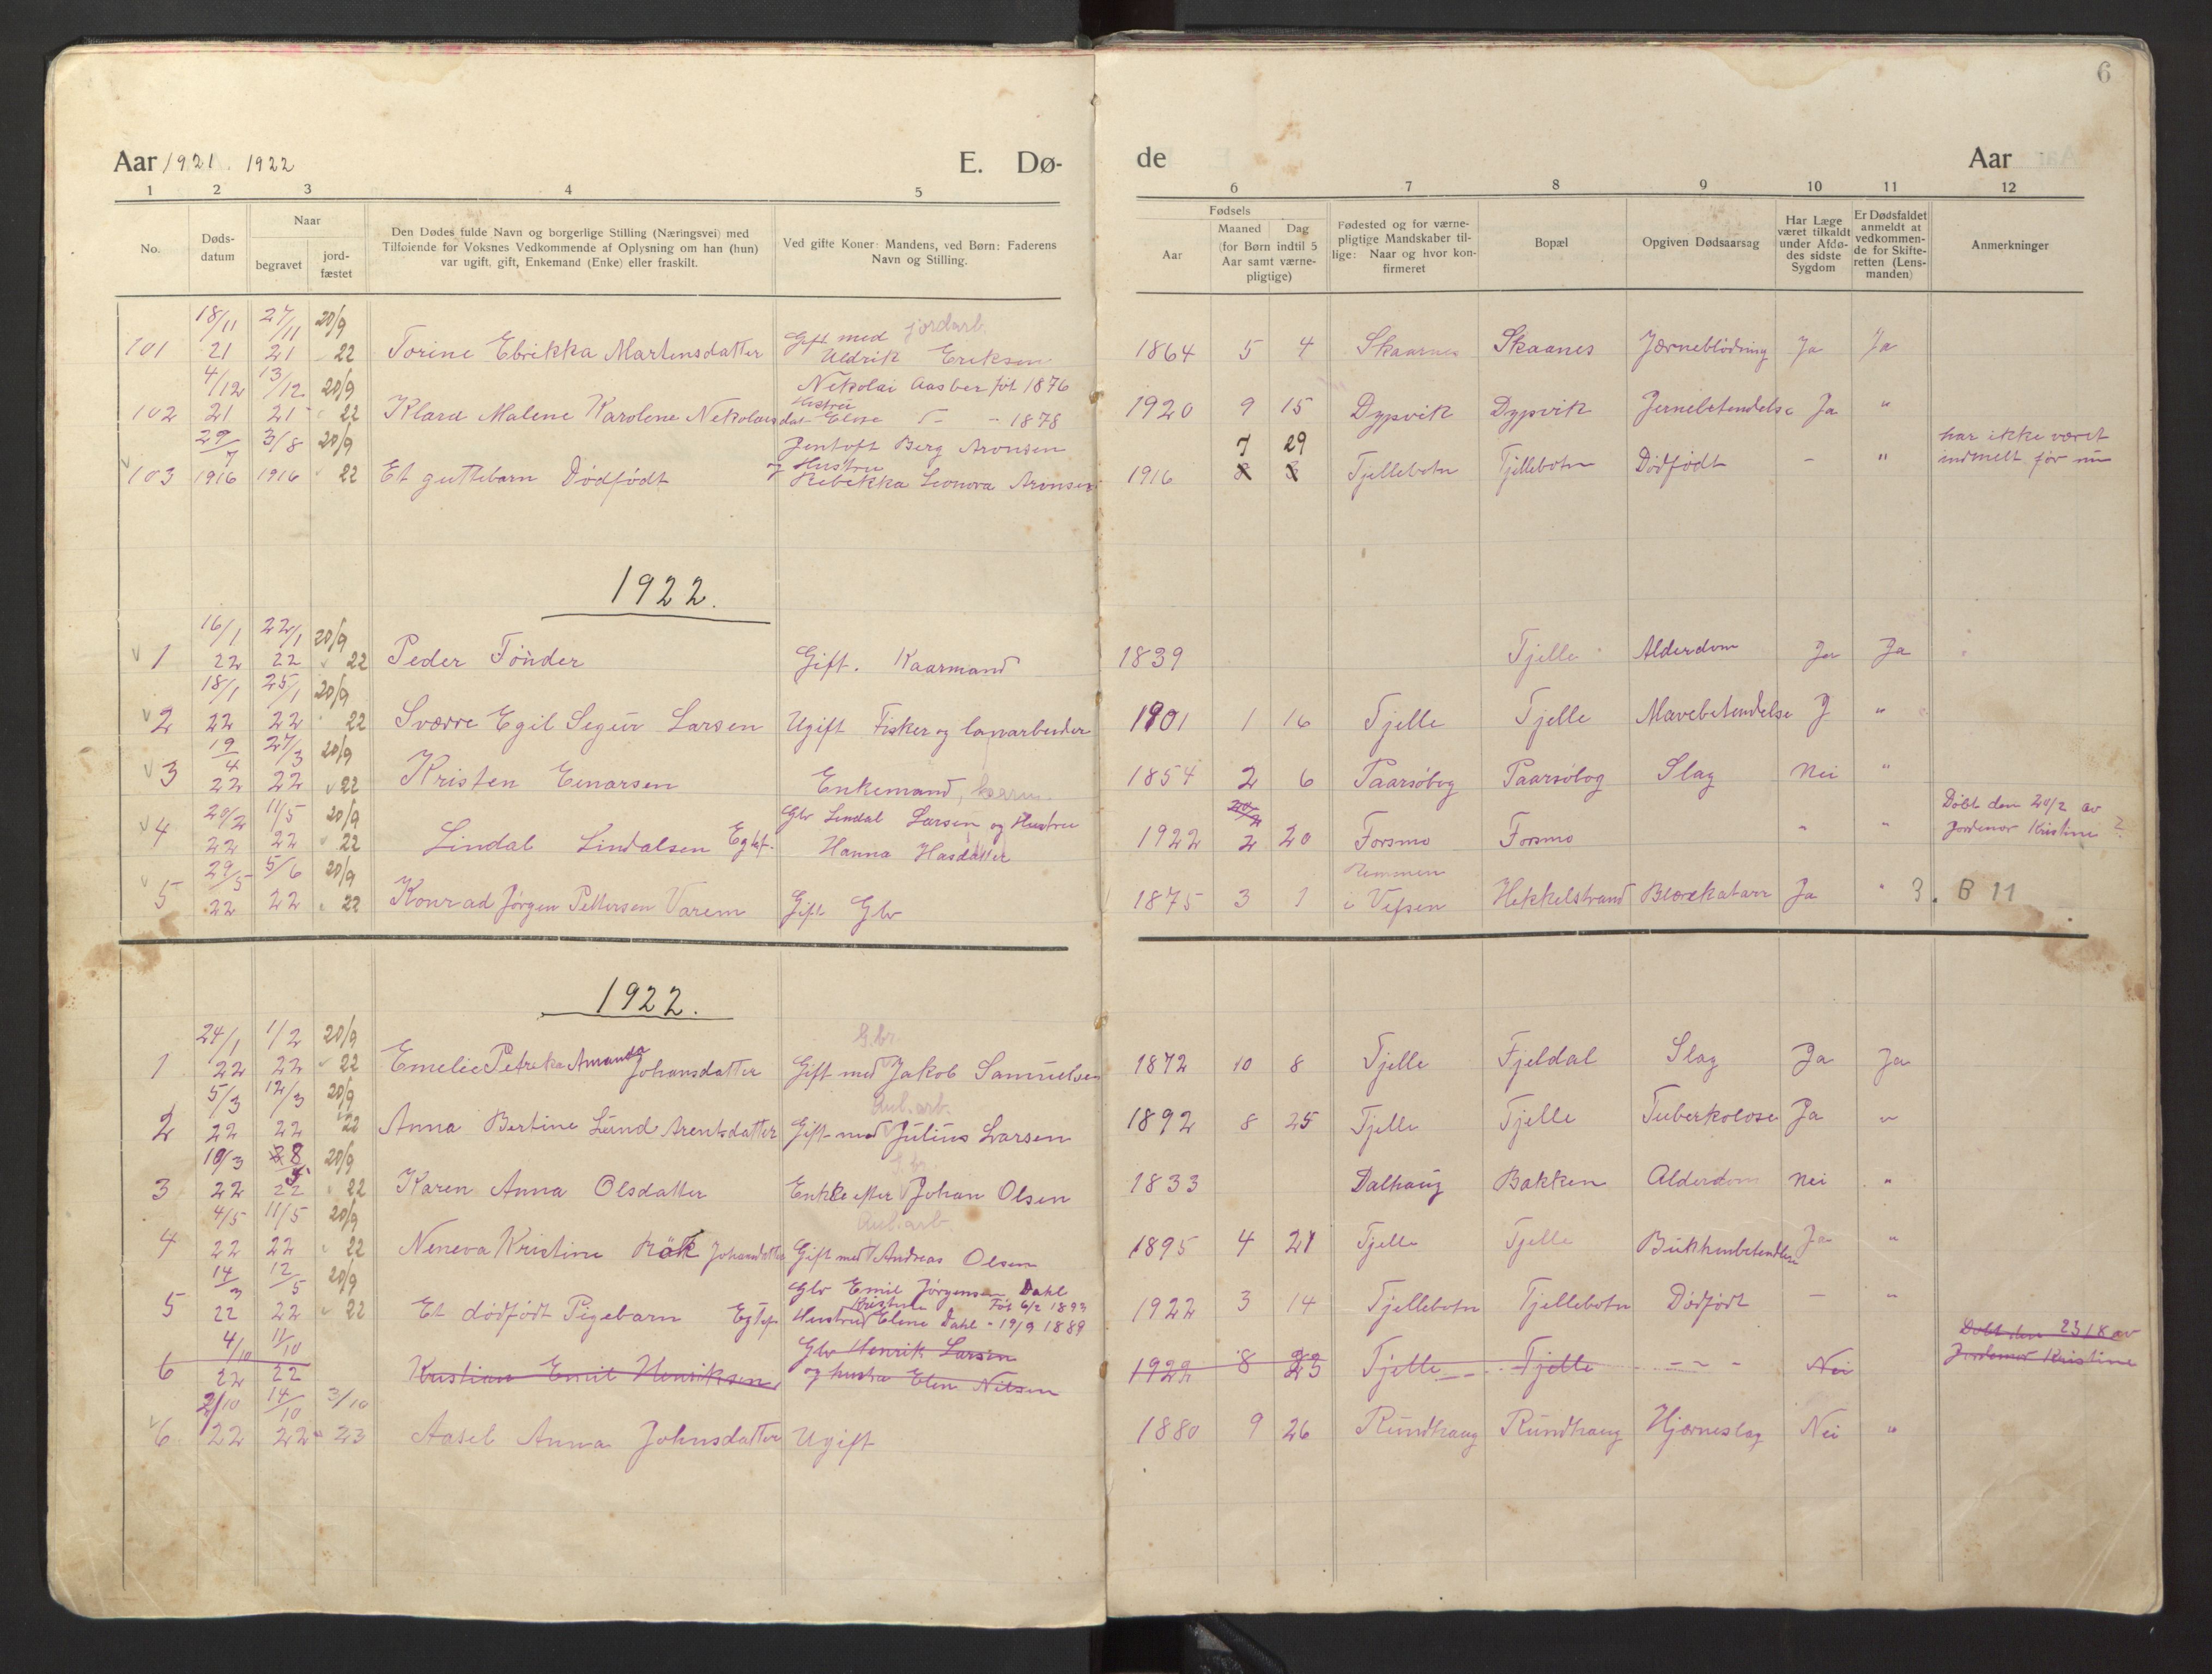 6
Aar 1921. 1922 E. Dø- de Aar
1 2 3 4 5 6 7 8 9 10 11 12
No.
Døds-
datum
Naar
begravet
jord-
fæstet
Den Dødes fulde Navn og borgerlige Stilling (Næringsvei) med
Tilføiende for Voksnes Vedkommende af Oplysning om han (hun)
var ugift, gift, Enkemand (Enke) eller fraskilt.
Ved gifte Koner: Mandens, ved Børn: Faderens
Navn og Stilling.
Fødsels
Aar
Maaned Dag
(for Børn indtil 5
Aar samt værne-
pligtige)
Fødested og for værne-
pligtige Mandskaber til-
lige: Naar og hvor kon-
firmeret
Bopæl
Opgiven Dødsaarsag
Har Læge
været tilkaldt
under Afdø-
des sidste
Sygdom
Er Dødsfaldet
anmeldt at
vedkommen-
de for Skifte-
retten (Lens-
manden)
Anmerkninger
18/11 27/11 20/9 jordarb.
Gift med
101 21 21 22 Torine Ebrikka Martensdatter Uldrik Eriksen 1864 5 4 Skaarnes Skaanes Jærneblödning Ja Ja
4/12 13/12 20/9 Nekolai Aasber föt 1876
Hustru
102 21 21 22 Klara Malene Karolene Nekolaisdat Elise - 1878 1920 9 15 Dypvik Dypvik Jernebetendelse Ja "
29/7 3/8 20/9 Jentoft Berg Aronsen 7 29 har ikke været
og Hustru
103 1916 1916 22 Et guttebarn Dödfödt Rebekka Leonora Aronsen 1916 8 8 Tjellebotn Tjellebotn Dödfödt - " indmelt för nu
1922.
16/1 22/1 20/9
1 22 22 22 Peder Tönder Gift. Kaarmand 1839 Tjelle Alderdom Ja Ja
18/1 25/1 20/9
2 22 22 22 Sværre Egil Segur Larsen Ugift Fisker og lönarbeider 1901 1 16 Tjelle Tjelle Mavebetendelse J "
19/4 27/3 20/9
3 22 22 22 Kristen Einarsen Enkemand, kaarm. 1854 2 6 Taarsöbog Taarsöbog Slag Nei "
20/2 11/5 20/9 Glv Lindal Larsen og Hustru 20/2 Döbt den 20/2 av
4 22 22 22 Lindal Lindalsen Egtef. Hanna Hasdatter 1922 2 20 Forsmo Forsmo " " Jordemor Kristine ?
29/5 5/6 20/9 Remmen
5 22 22 22 Konrad Jörgen Pettersen Varem Gift Glv 1875 3 1 i Vefsen Hekkelstrand Blærekatarr Ja " 3. B 11
1922.
24/1 1/2 20/9 G.br.
1 22 22 22 Emelie Petreka Amanda Johansdatter Gift med Jakob Samuelsen 1872 10 8 Tjelle Fjeldal Slag Ja Ja
5/3 12/3 20/9 Rul.arb.
2 22 22 22 Anna Bertine Lund Arentsdatter Gift med Julius Larsen 1892 8 25 Tjelle Tjelle Tuberkolose Ja "
10/3 8/5 20/9 G.br
3 22 22 22 Karen Anna Olsdatter Enke efter Johan Olsen 1833 Dalhaug Bakken Alderdom Nei "
4/5 11/5 20/9 Rul.arb.
4 22 22 22 Neneva Kristine Räk Johansdatter Gift med Andreas Olsen 1895 4 21 Tjelle Tjelle Bukhenbetendlse Ja "
14/3 12/5 20/9 Glv Emil Jörgensen Dahl
Kristine Föt 6/2 1893
5 22 22 22 Et dödfödt Pigebarn Egtef Hustru Elene Dahl - 19/9 1889 1922 3 14 Tjellebotn Tjellebotn Dödfödt - "
4/10 11/10 Glv Henrik Larsen Döbt den 23/8 av
6 22 22 Kristian Emil Henriksen og hustru Elen Nilsen 1922 8 23 Tjelle Tjelle - - - Nei Jordemor Kristine
2/10 14/10 3/10
6 22 22 23 Aasel Anna Johnsdatter Ugift 1880 9 26 Rundhaug Rundhaug Hjærneslag Nei "